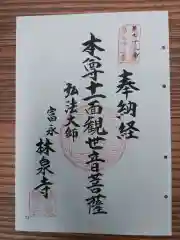 奉納経
本尊十一面観世音菩薩
弘法大師
富永
林泉寺